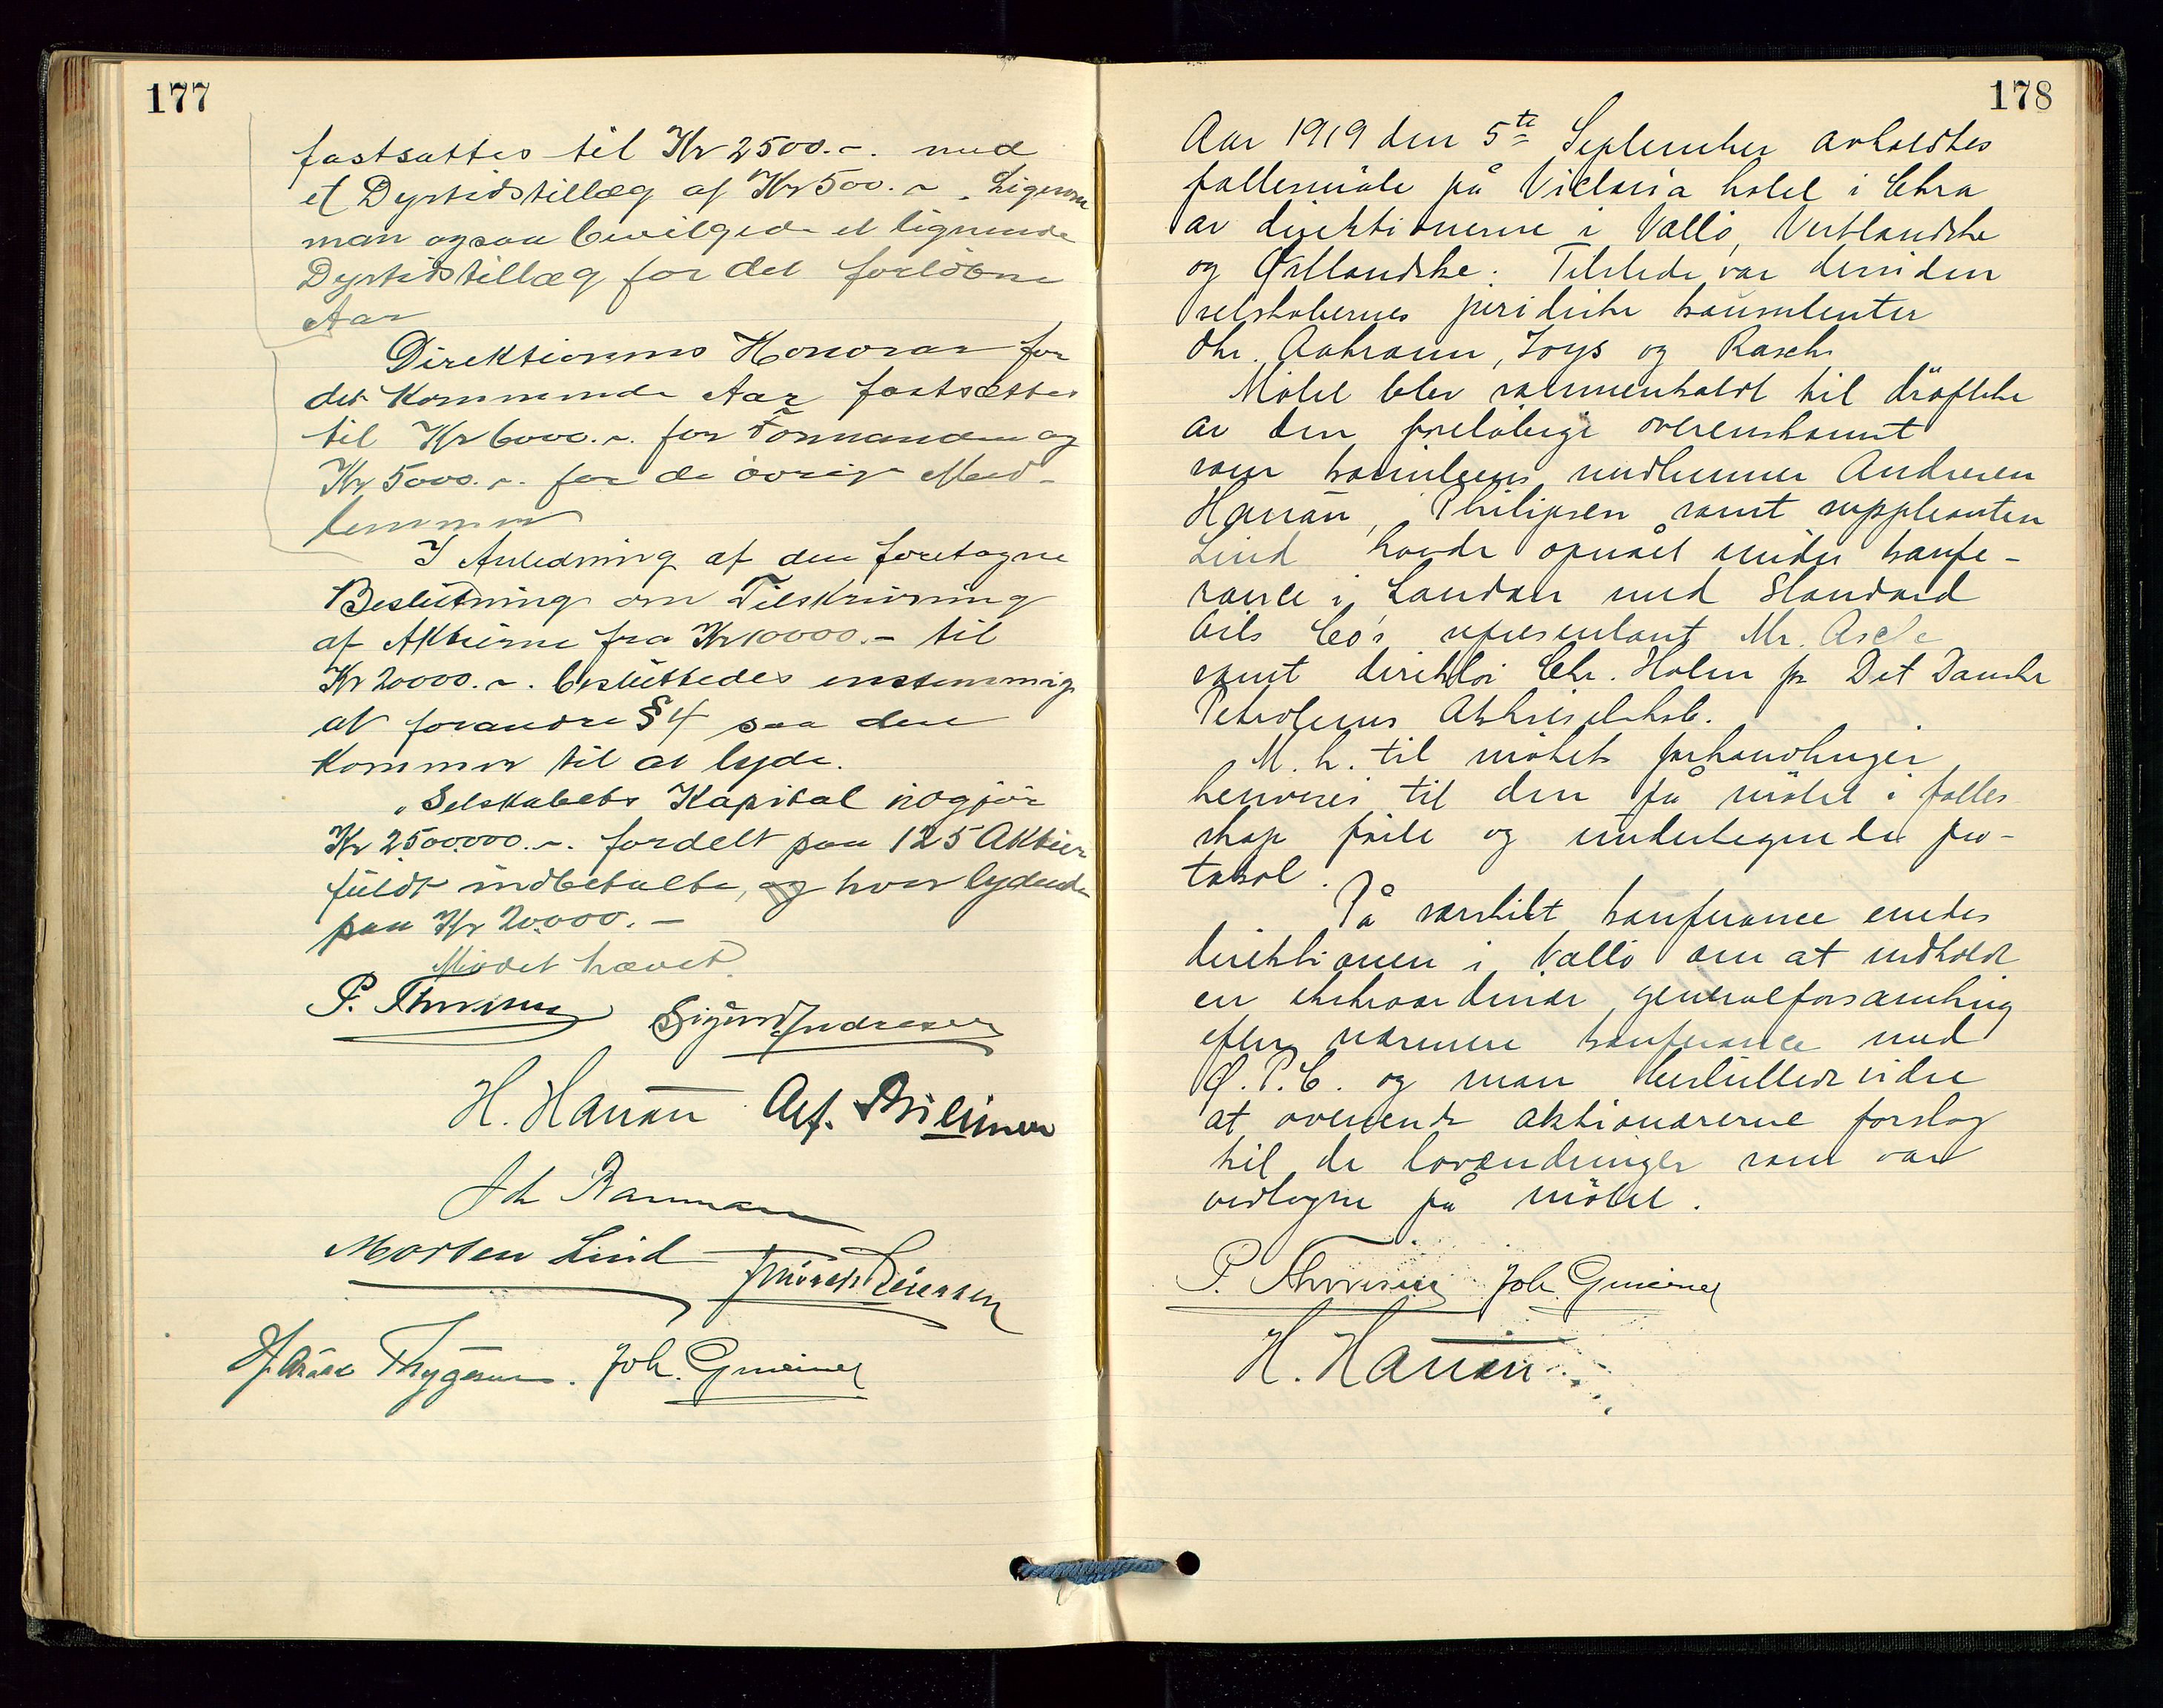 177
fastsattes til Kr 2500.-. med
et Dyrtidstillæg af Kr 500.-. Ligesom
man ogsaa bevilgede et lignende
Dyrtidstillæg for det forløbne
Aar
Direktionens Honorar for
det kommende Aar fastsættes
til Kr 6000.-. for Formanden og
Kr 5000.-. for de øvrige Med-
lemmer
I Anledning af den foretagne
Beslutning om Tilskrivning
af Aktierne fra Kr 10000.- til
Kr 20000.-. besluttedes enstemmig
at forandre § 4 saa den
kommer til at lyde.
"Selskabets Kapital udgjør
Kr 2.500.000.-. fordelt paa 125 Aktier
fuldt indbetalte, og hver lydende
paa Kr 20.000.-
Mødet hævet.
P. Thoresen Sigurd Andresen
H. Hansen Arf.
Morten Lind
Thygesen. Joh.
178
Aar 1919 den 5te September avholdtes
fællesmøte på Victoria hotel i Chra
av direktionerne i Vallö, Vestlandske
og Østlandske. Tilstede var desuden
selskabernes juridiske konsulenter
Hr. Joys og Rasch.
Møtet blev sammenkaldt til drøftelse
av den foreløbige overenskomst
som komiteens medlemmer Andresen
Hansen, Philipsen samt suppleanten
Lind havde opnået under konfe-
rance i London med Standard
Oils Co's representant Mr.
samt direktør Chr. Holm for Det Danske
Petroleums Aktieselskab.
M. h. til møtets forhandlinger
henvises til den på møtet i fælles
skap førte og undertegnede pro-
tokol.
På særskilt konferance enedes
direktionen i Vallö om at indkalde
en ekstraordinær generalforsamling
efter nærmere konferance med
Ø.P.C. og man besluttede videre
at oversende aktionærerne forslag
til de lovændringer som var
vedtagne på møtet.
P. Thoresen Joh.
H. Hansen